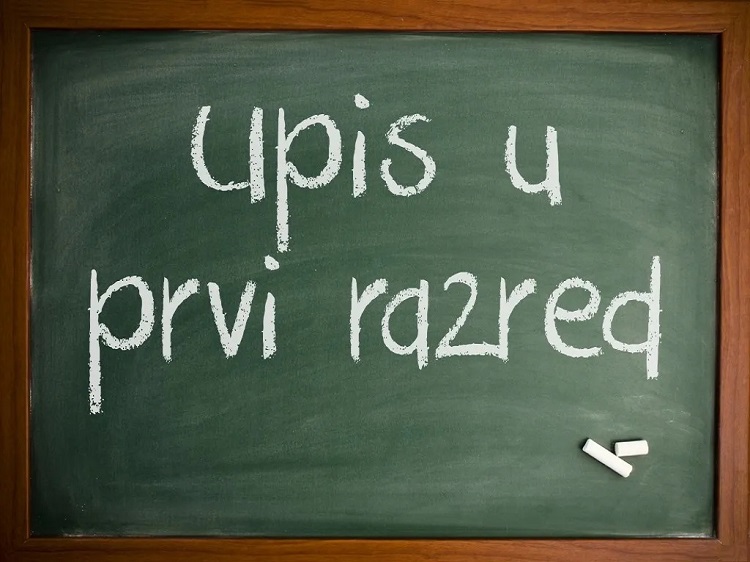 upis u
prvi razred